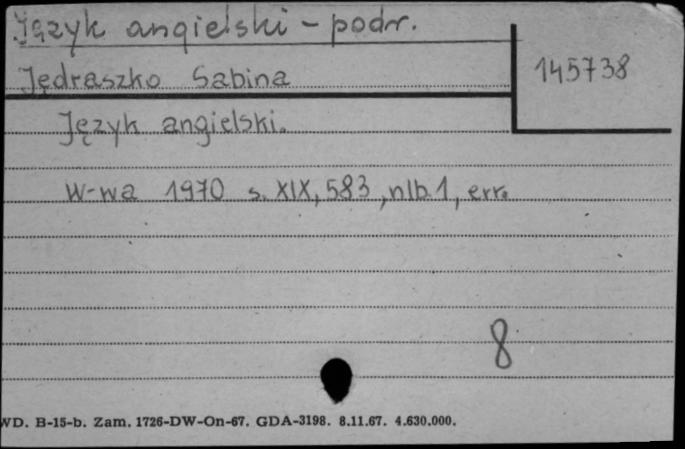 Język angielski - podr.
Jędraszko Sabina
145738
Język angielski.
W-wa 1970 s. XIX, 583, nlb. 1, err.
8
WD. B-15-b. Zam. 1726-DW-On-67. GDA-3198. 8.11.67. 4.630.000.